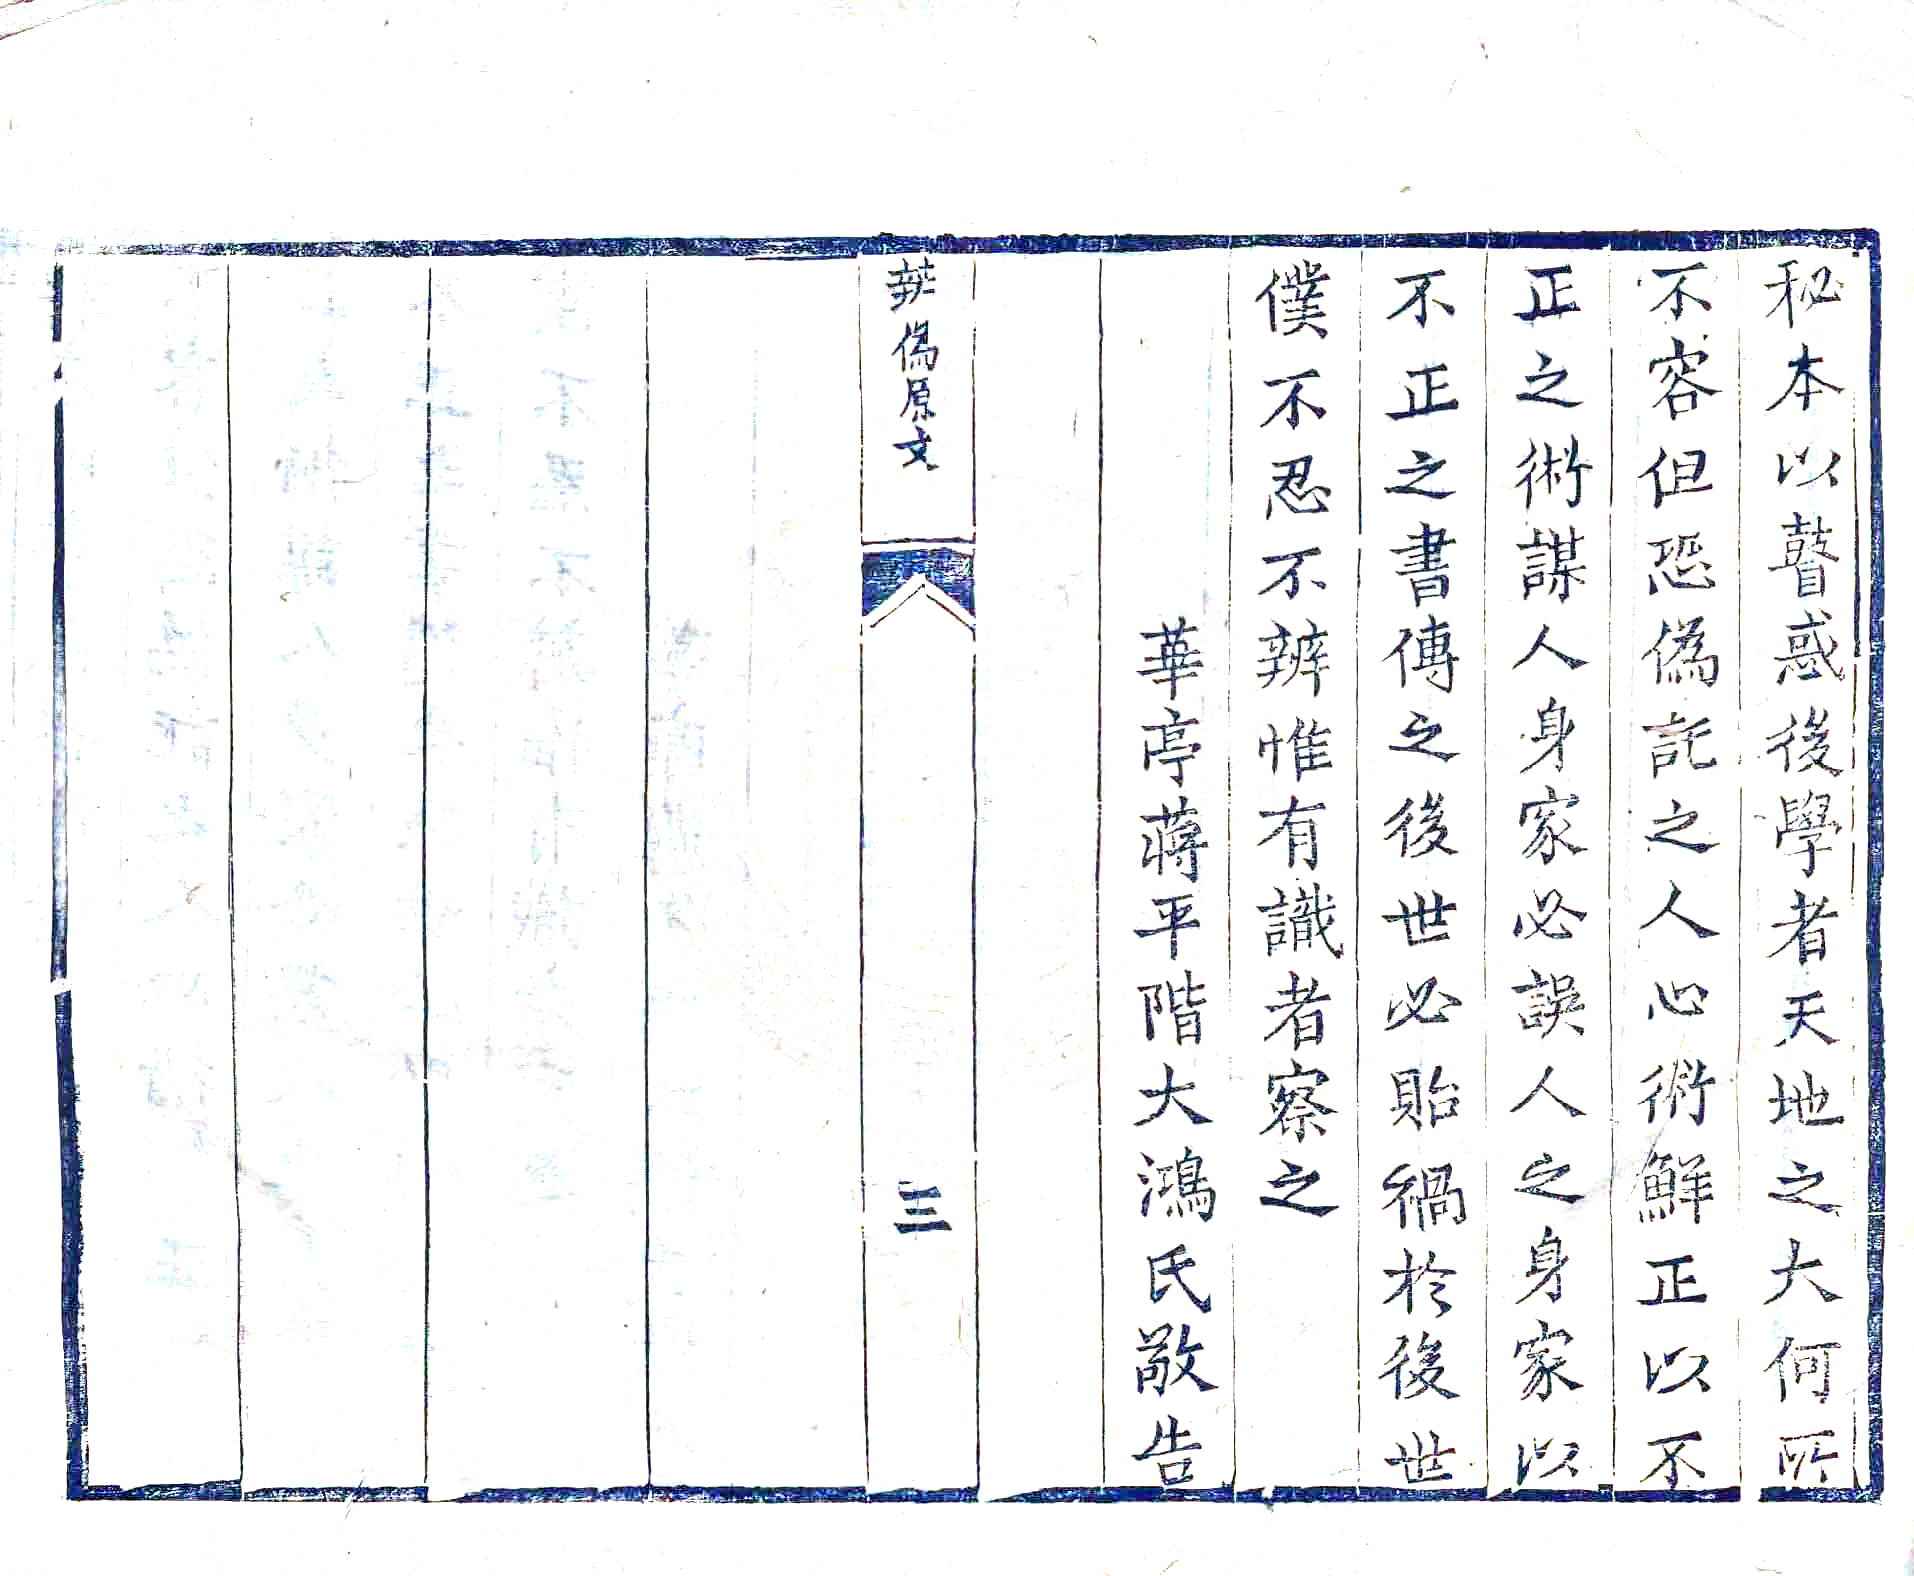 秘本以瞽惑後學者天地之大何所
不容但恐僞託之人心術鮮正以不
正之術謀人身家必誤人之身家以
不正之書傳之後世必貽禍於後世
僕不忍不辨惟有識者察之
華亭蔣平階大鴻氏敬告
辨僞原文
三